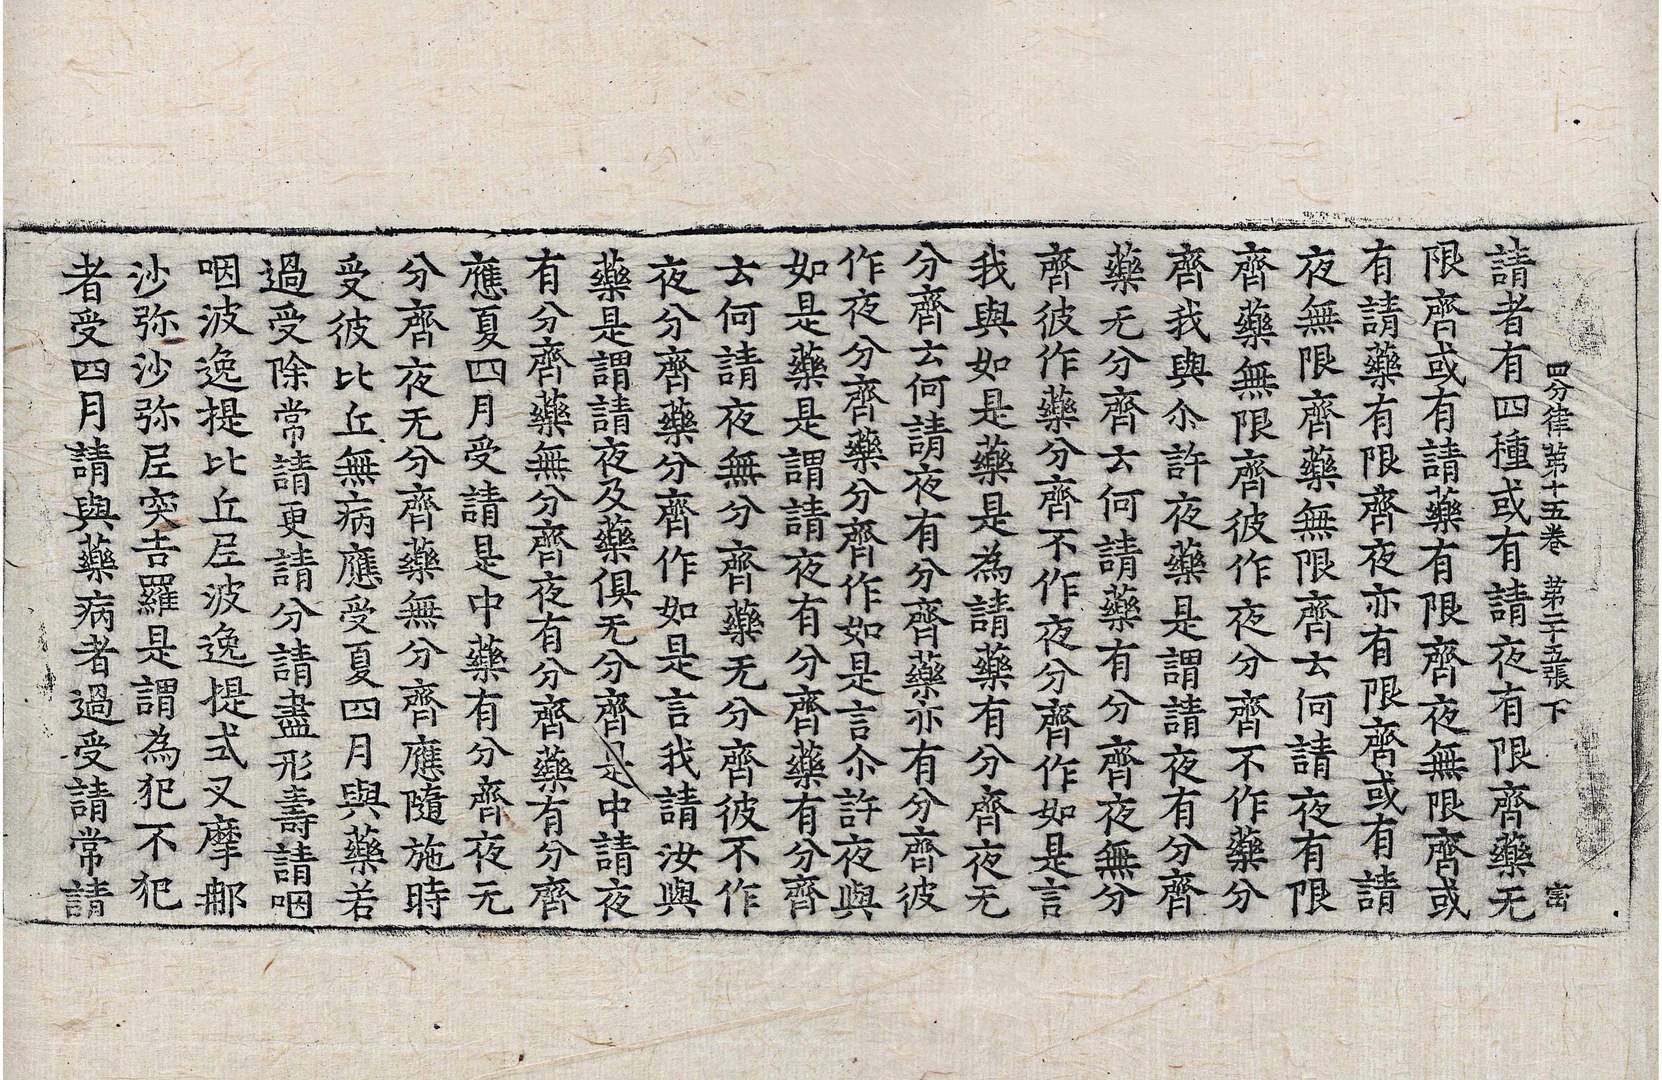 四分律第十五卷 第二十五張 下
請者有四種或有請夜有限齊藥无
限齊或有請藥有限齊夜無限齊或
有請藥有限齊夜亦有限齊或有請
夜無限齊藥無限齊云何請夜有限
齊藥無限齊彼作夜分齊不作藥分
齊我與尒許夜藥是謂請夜有分齊
藥无分齊云何請藥有分齊夜無分
齊彼作藥分齊不作夜分齊作如是言
我與如是藥是為請藥有分齊夜无
分齊云何請夜有分齊藥亦有分齊彼
作夜分齊藥分齊作如是言尒許夜與
如是藥是謂請夜有分齊藥有分齊
云何請夜無分齊藥无分齊彼不作
夜分齊藥分齊作如是言我請汝與
藥是謂請夜及藥俱无分齊是中請夜
有分齊藥無分齊夜有分齊藥有分齊
應夏四月受請是中藥有分齊夜无
分齊夜无分齊藥無分齊應隨施時
受彼比丘無病應受夏四月與藥若
過受除常請更請分請盡形壽請咽
咽波逸提比丘尼波逸提式叉摩那
沙弥沙弥尼突吉羅是謂為犯不犯
者受四月請與藥病者過受請常請